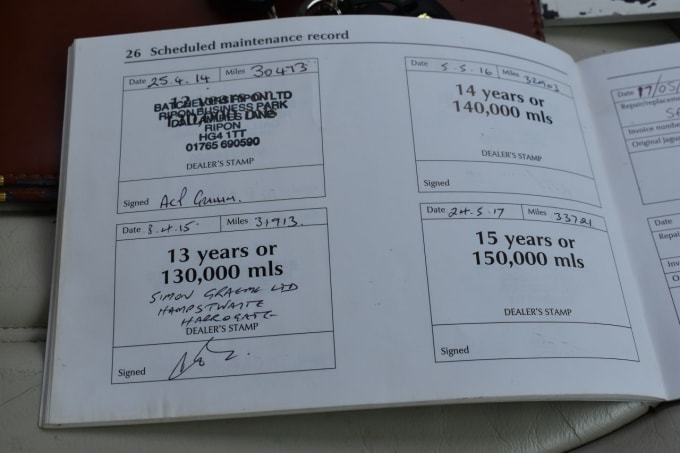 26 Scheduled maintenance record
Date 25.4.14 Miles 30473
BATCHELORS RIPON LTD
RIPON BUSINESS PARK
DALLAMIRES LANE
RIPON
HG4 1TT
01765 690590
DEALER'S STAMP
Signed
Date 3.4.15 Miles 31913
13 years or
130,000 mls
SIMON GRAEME LTD
HAMPSTWAITE
HARROGATE
DEALER'S STAMP
Signed
Date 5.5.16 Miles
14 years or
140,000 mls
DEALER'S STAMP
Signed
Date 24.5.17 Miles 33721
15 years or
150,000 mls
DEALER'S STAMP
Signed
Date 17/05/
Repair/replaceme
Invoice number
Original Jagu
Date
Repai
Inv
O